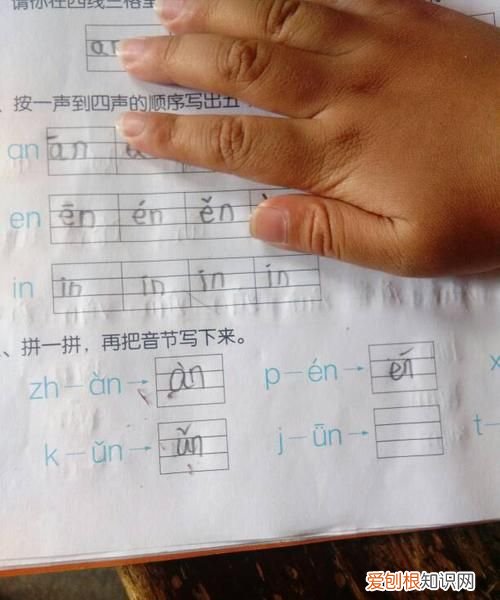 请你在四线三格里
an
按一声到四声的顺序写出五
an ān
en ēn én ěn
in in in in in
拼一拼，再把音节写下来。
zh—àn→ àn p—én→ én
k—ǔn→ ǔn j—ūn→ t—
爱刨根知识网
www.baogen.net